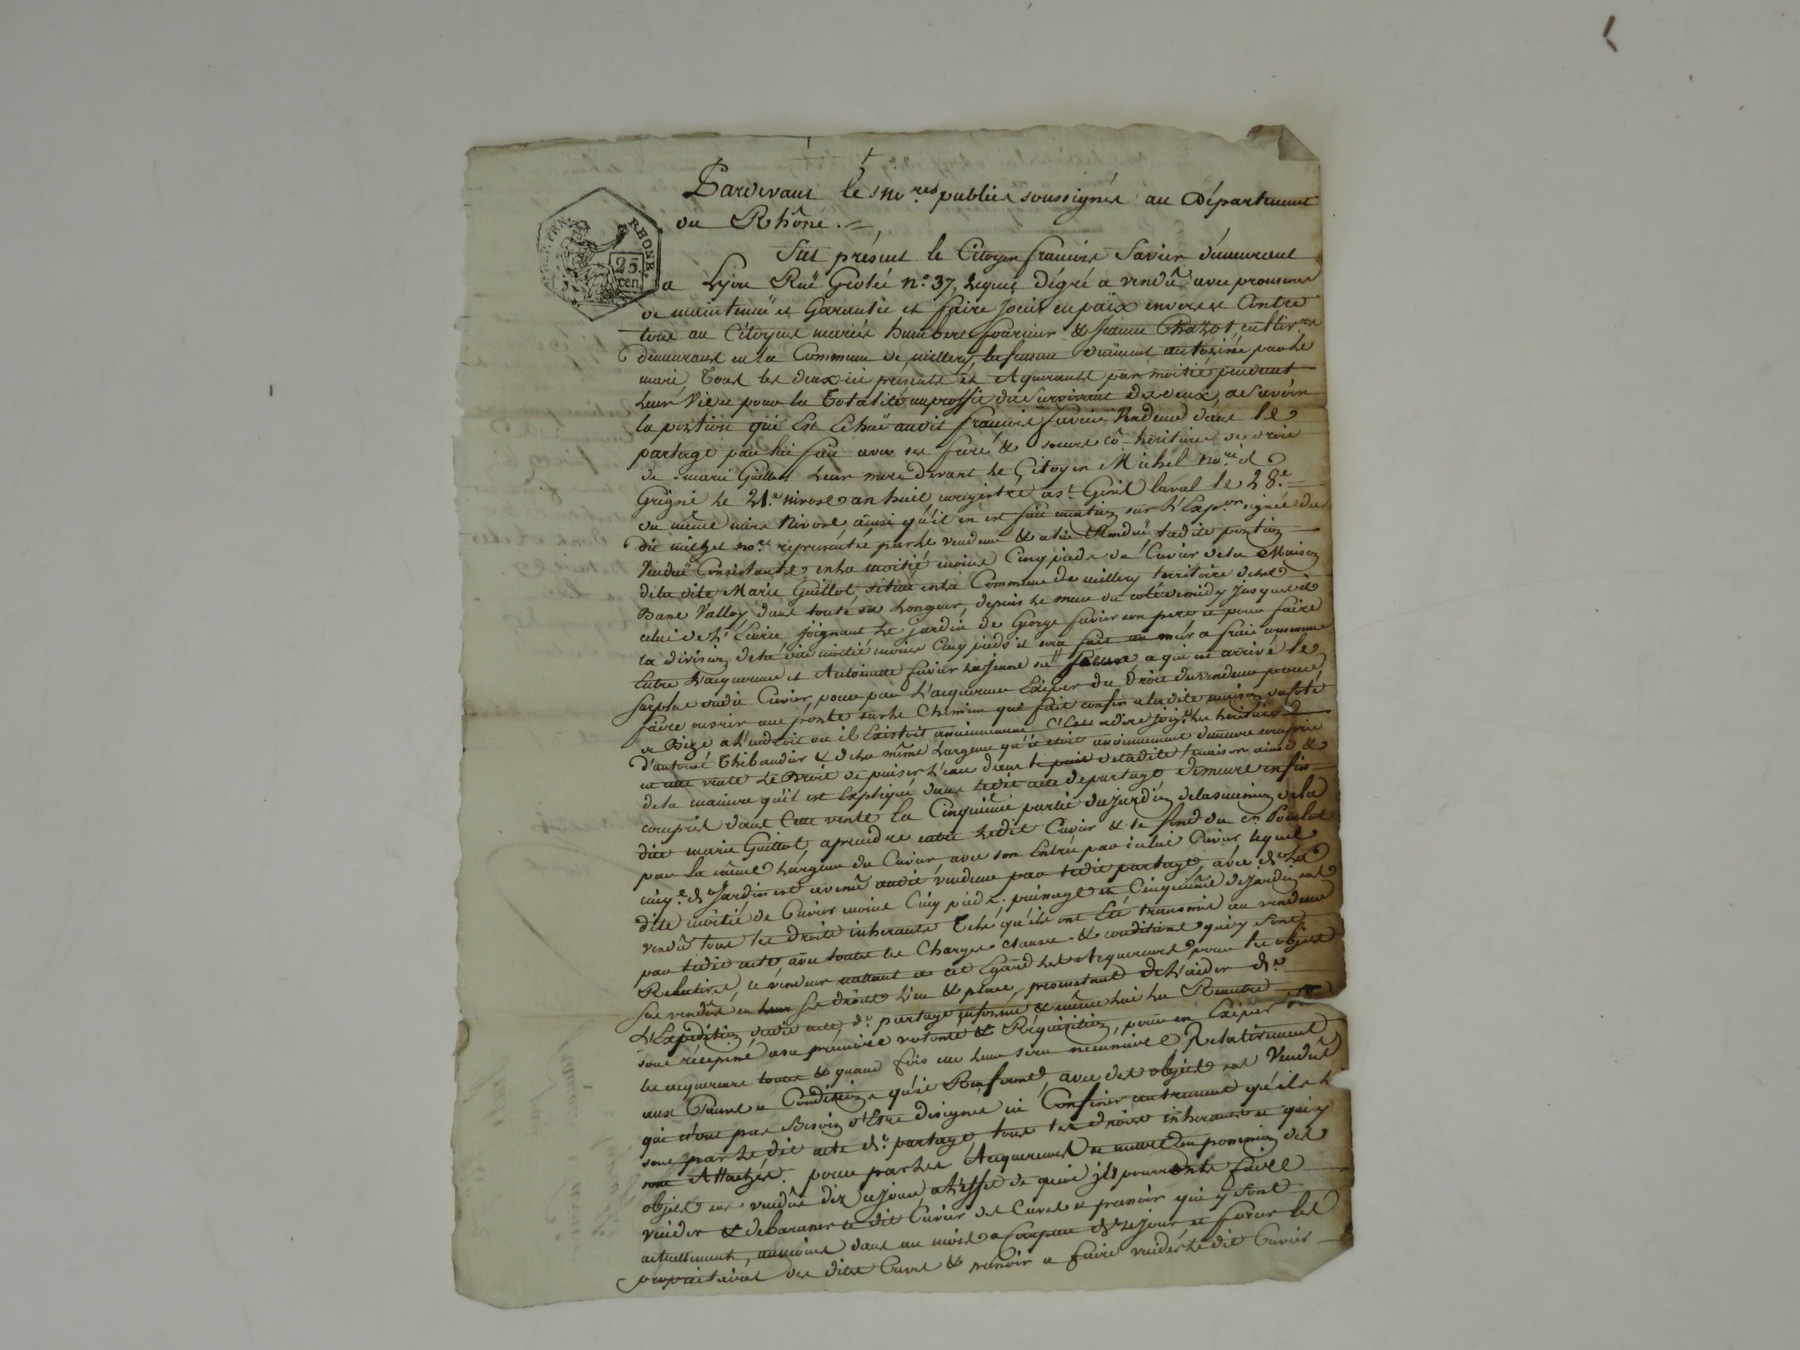 Pardevant le no.res publics soussignés au Département
du Rhône.
RHONE
25
cen
fut présent le Citoyen francois favier demeurant
a Lyon Rüe Grolée n.° 37, Lequel dégré a vendû avec promesse
de maintenuë et Garantie et faire Jouir en paix envers et Contre
tous au Citoyens mariés humbert fournier & Jeanne Chazot, cultiv.rs
demeurant en la Commune de millery, la femme dument autorisée par le
mari, Tous les deux ici présents et Aquerants par moitié pendant
Leur Vie et pour la Totalité au proffit du Survivant des deux, a Savoir
la portion qui Est Echuë audit francois favier Vendeur dans le
partage par lui fait avec ses frere & soeurs cô-heritiers de droit
de marie Guillot Leur mere devant Le Citoyen Michel no.re a
Grigné le 21.e nivose an huit enregistré a s.t Genis laval le 28.e
du même mois Nivose ainsi qu'il en est fait mention sur L'Exp.on signée du
dit michel no.re representée par le vendeur & a lui Rendue ladite portion
Venduë Consistante, en La moitié moins Cinq pieds du Cuvier de la Maison
de la dite Marie Guillot, située en la Commune de millery territoire de
Bane Valloy dans toute sa Longueur, depuis le mur du coté de midy Jusques à
celui de L'Ecurie joignant Le Jardin de George favier son pere et pour faire
la division de la dite moitié moins Cinq pieds il sera fait un mur a frais communs
Entre L'acquereur et Antoinette favier La Jeune sa soeur a qui est arrivé le
Surplus dudit Cuvier, pour par L'acquereur Exiper du Droit du vendeur pour
faire ouvrir une porte sur le Chemin qui fait confin a la dite maison du coté
de Bize a L'endroit ou il Existoit anciennement C'Est adire joig.t les heritiers
d'antoine Thibaudier & de la même Largeur qu'il etoit anciennement demeure compris
en cette vente Le Droit de puiser L'eau dans le puit de ladite maison ainsi &
de la maniere qu'il est Expliqué dans ledit acte de partage demeure enfin
compris dans Cette vente La Cinquième partie du jardin de la maison de la
dite marie Guillot, a prendre entre Ledit Cuvier & le fond du C.n Poulot
par la même Largeur du Cuvier, avec son Entrée par icelui Cuvier, lequel
cinq.e de Jardin est avenû audit vendeur par ledit partage, avec la
dite moitié de Cuvier moins Cinq pieds, puisage et Cinquième de Jardin est
vendû tous les Droits inherants Tels qu'ils ont Eté transmis au vendeur
par ledit acte, avec toutes les Charges clauses & conditions qui y sont
Relatives, le vendeur mettant a cet Egard Les Acquereurs pour les objets
Sus vendûs en ses droits Lieu & place, promettant de L'aider de
L'Expedition dudit acte de partage informe & même lui La Remettre
sous récepissé a sa première volonté & Réquisition, pour en Exiper
les acquereurs toutes & quand fois que leur sera necessaire Relativement
aux Clauses et Conditions qu'il Renferme, avec des objets sus Vendûs
qui n'ont pas Besoin d'Etre désignés ici Confinés autrement qu'ils le
sont par le dit acte de partage, tous les droits inherants et qui y
sont Attachés. pour par les Acquereurs se mettre en possession des
objets sus vendûs dez ce jour, a L'effet de quoi ils pourront faire
vuider & debarasser le dit Cuvier des Cuves et pressoir qui y sont
actuellement, au moins dans un mois a compter de ce Jour et forcer les
propriétaires des dites Cuves & pressoir a faire vuider le dit Cuvier